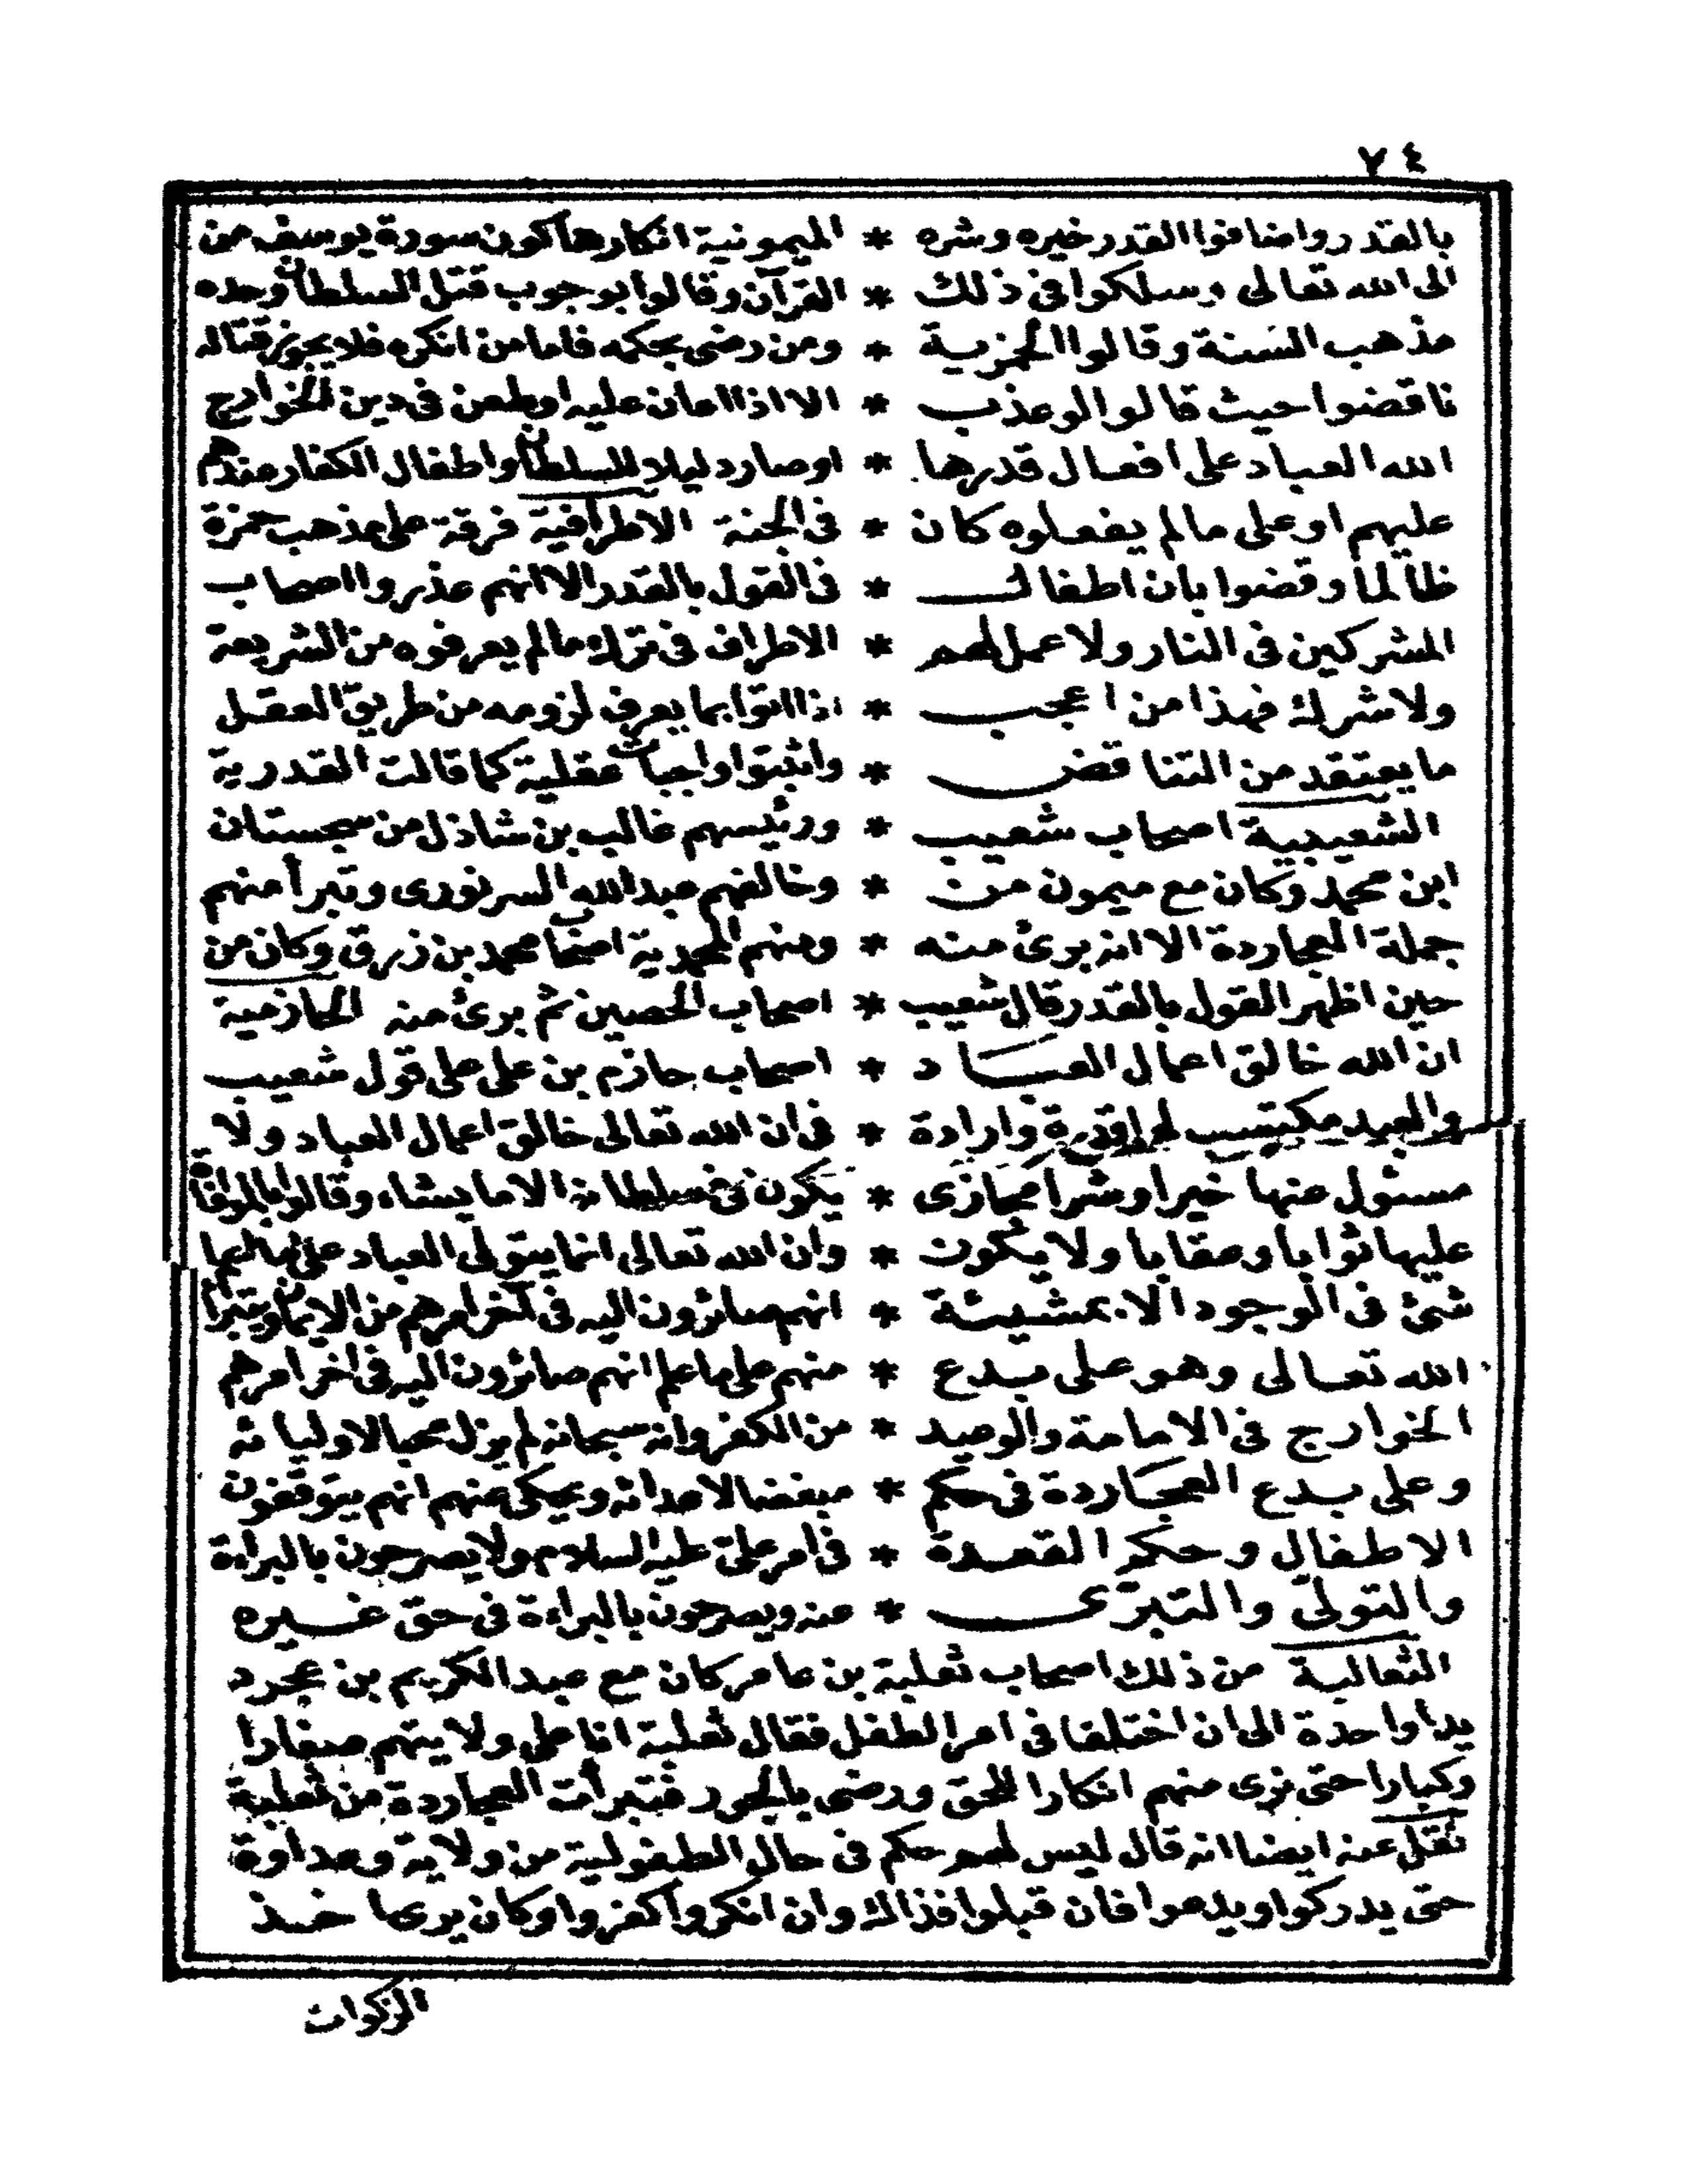 ٧٤
بالقدر واضافوا القدر خيره وشره * الميمونية انكارها كون سورة يوسف من
الى الله تعالى وسلكوا فى ذلك * القرآن وقالوا بوجوب قتل السلطان وحده
مذهب السنة وقالوا الحمزية * ومن رضى بحكمه فاما من انكره فلا يجوز قتاله
ناقضوا حيث قالوا لو عذب * الا اذا اعان عليه او طعن فى دين الخوارج
الله العباد على افعال قدرها * او صار دليلا للسلطان واطفال الكفار عندهم
عليهم او على ما لم يفعلوه كان * فى الجنة الاطرافية فرقة على مذهب حمزة
ظالما وقضوا بان اطفال * فى القول بالقدر الا انهم عذروا اصحاب
المشركين فى النار ولا عمل لهم * الاطراف فى ترك ما لم يعرفوه من الشريعة
ولا شرك فهذا من اعجب * اذا اتوا بما يعرف لزومه من طريق العقل
ما يعتقد من التناقض * واثبتوا واجبات عقلية كما قالت القدرية
الشعيبية اصحاب شعيب * ورئيسهم غالب بن شاذل من سجستان
ابن محمد وكان مع ميمون من * وخالفهم عبد الله السرنورى وتبرأ منهم
جملة العجاردة الا انه برئ منه * ومنهم المحمدية اصحاب محمد بن زرق وكان من
حين اظهر القول بالقدر قال شعيب * اصحاب الحصين ثم برئ منه الحازمية
ان الله خالق اعمال العباد * اصحاب حازم بن على على قول شعيب
والعبد مكتسب لها قدرة وارادة * فى ان الله تعالى خالق اعمال العباد ولا
مسئول عنها خيرا وشرا مجازى * يكون فى سلطانه الا ما يشاء وقالوا بالموافاة
عليها ثوابا وعقابا ولا يكون * وان الله تعالى انما يتولى العباد على ما علم
شئ فى الوجود الا بمشيئة * انهم صائرون اليه فى آخر امرهم من الايمان ويتبرأ
الله تعالى وهو على بدع * منهم على ما علم انهم صائرون اليه فى اخر امرهم
الخوارج فى الامامة والوعيد * من الكفر وانه سبحانه لم يزل محبا لاوليائه
وعلى بدع العجاردة فى حكم * مبغضا لاعدائه ويحكى عنهم انهم يتوقفون
الاطفال وحكم القعدة * فى امر على عليه السلام ولا يصرحون بالبراءة
والتولى والتبرى * عنه ويصرحون بالبراءة فى حق غيره
الثعالبة من ذلك اصحاب ثعلبة بن عامر كان مع عبد الكريم بن عجرد
يدا واحدة الى ان اختلفا فى امر الطفل فقال ثعلبة انا على ولايتهم صغارا
وكبارا حتى نرى منهم انكارا للحق ورضى بالجور فتبرأت العجاردة من ثعلبة
نقل عنه ايضا انه قال ليس لهم حكم فى حال الطفولية من ولاية وعداوة
حتى يدركوا ويدعوا فان قبلوا فذاك وان انكروا كفروا وكان يرى اخذ
الزكوات